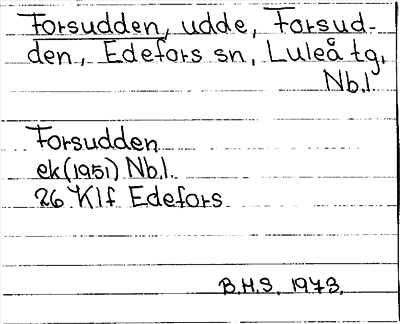 Forsudden, udde, Forsud-
den, Edefors sn, Luleå tg,
Nb.l.
Forsudden
ek (1951) Nb.l.
26 Klf Edefors
B.H.S. 1973.